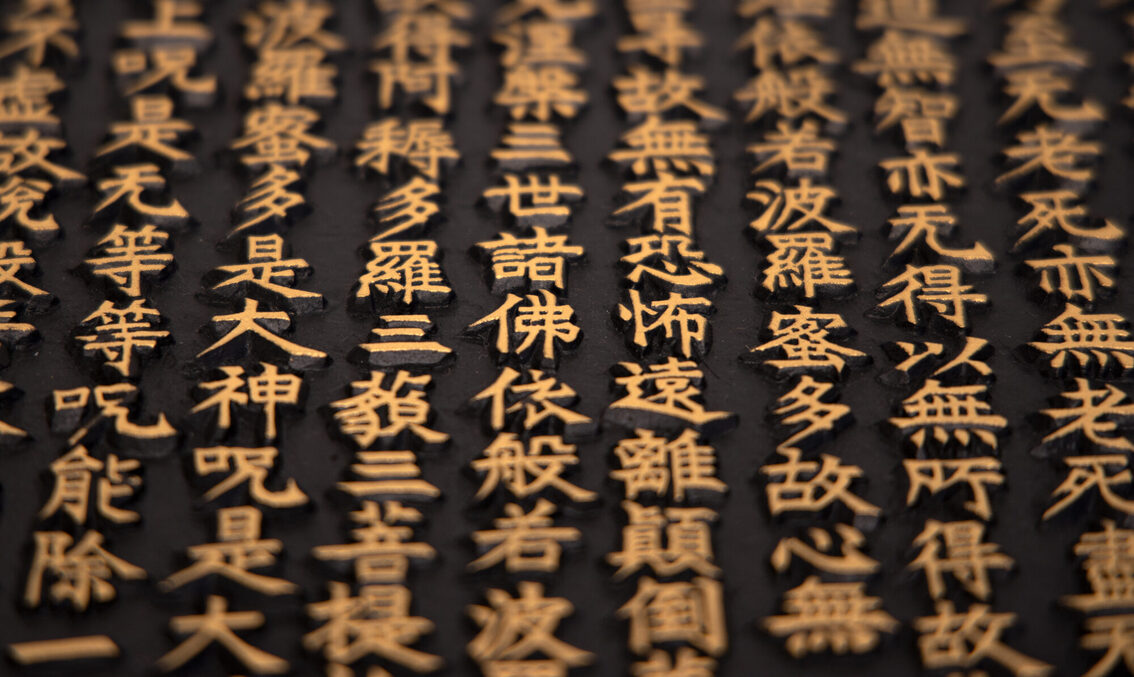 至无老死亦無老死盡无
道無智亦无得以無所得故
依般若波羅蜜多故心無
故無有恐怖遠離顛倒
涅槃三世諸佛依般若波
得阿耨多羅三藐三菩提
波羅蜜多是大神呪是大
上呪是无等等呪能除一
不虚故說般